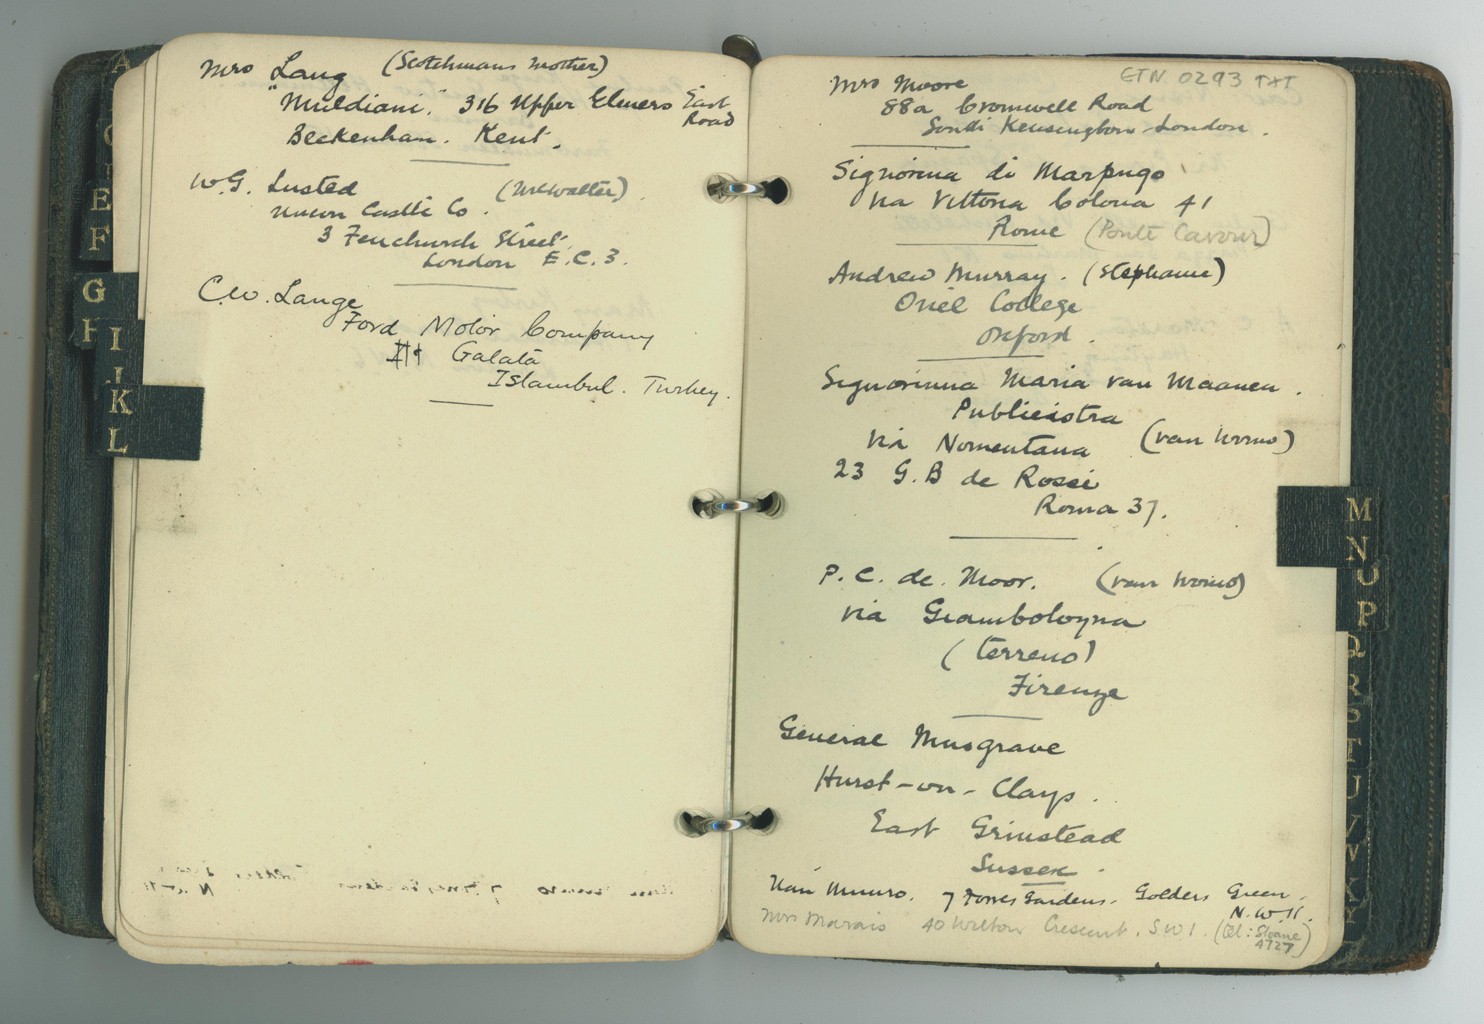 Mrs Lang (Scotchmans mother)
"Muldiani". 316 Upper Elmers East
Road
Beckenham. Kent.
W.G. Lusted (Mr Walter)
Union Castle Co.
3 Fenchurch Street.
London E.C.3.
C.W. Lange
Ford Motor Company
Galata
Istambul. Turkey.
ETN 0293 TXT
Mrs Moore
88a Cromwell Road
South Kensington London.
Signorina di Marpugo
Via Vittoria Colona 41
Rome (Ponte Cavour)
Andrew Murray. (Stephanie)
Oriel College
Oxford.
Signorinna Maria van Maanen.
Publicistra
Via Nomentana (van
23 G.B de Rossi
Roma 37.
P. C. de Moor. (van
Via Giambologna
(terreno)
Firenze
General Musgrave
Hurst-on-Clays.
East Grinstead
Sussex.
Nan Munro. 7 Gardens. Golders Green.
N.W.11.
Mrs Marais 40 Wilton Crescent. S.W.1. (tel: Sloane
4727)
A
C
E
F
G
H
I
J
K
L
M
N
O
P
Q
R
S
T
U
V
W
X
Y